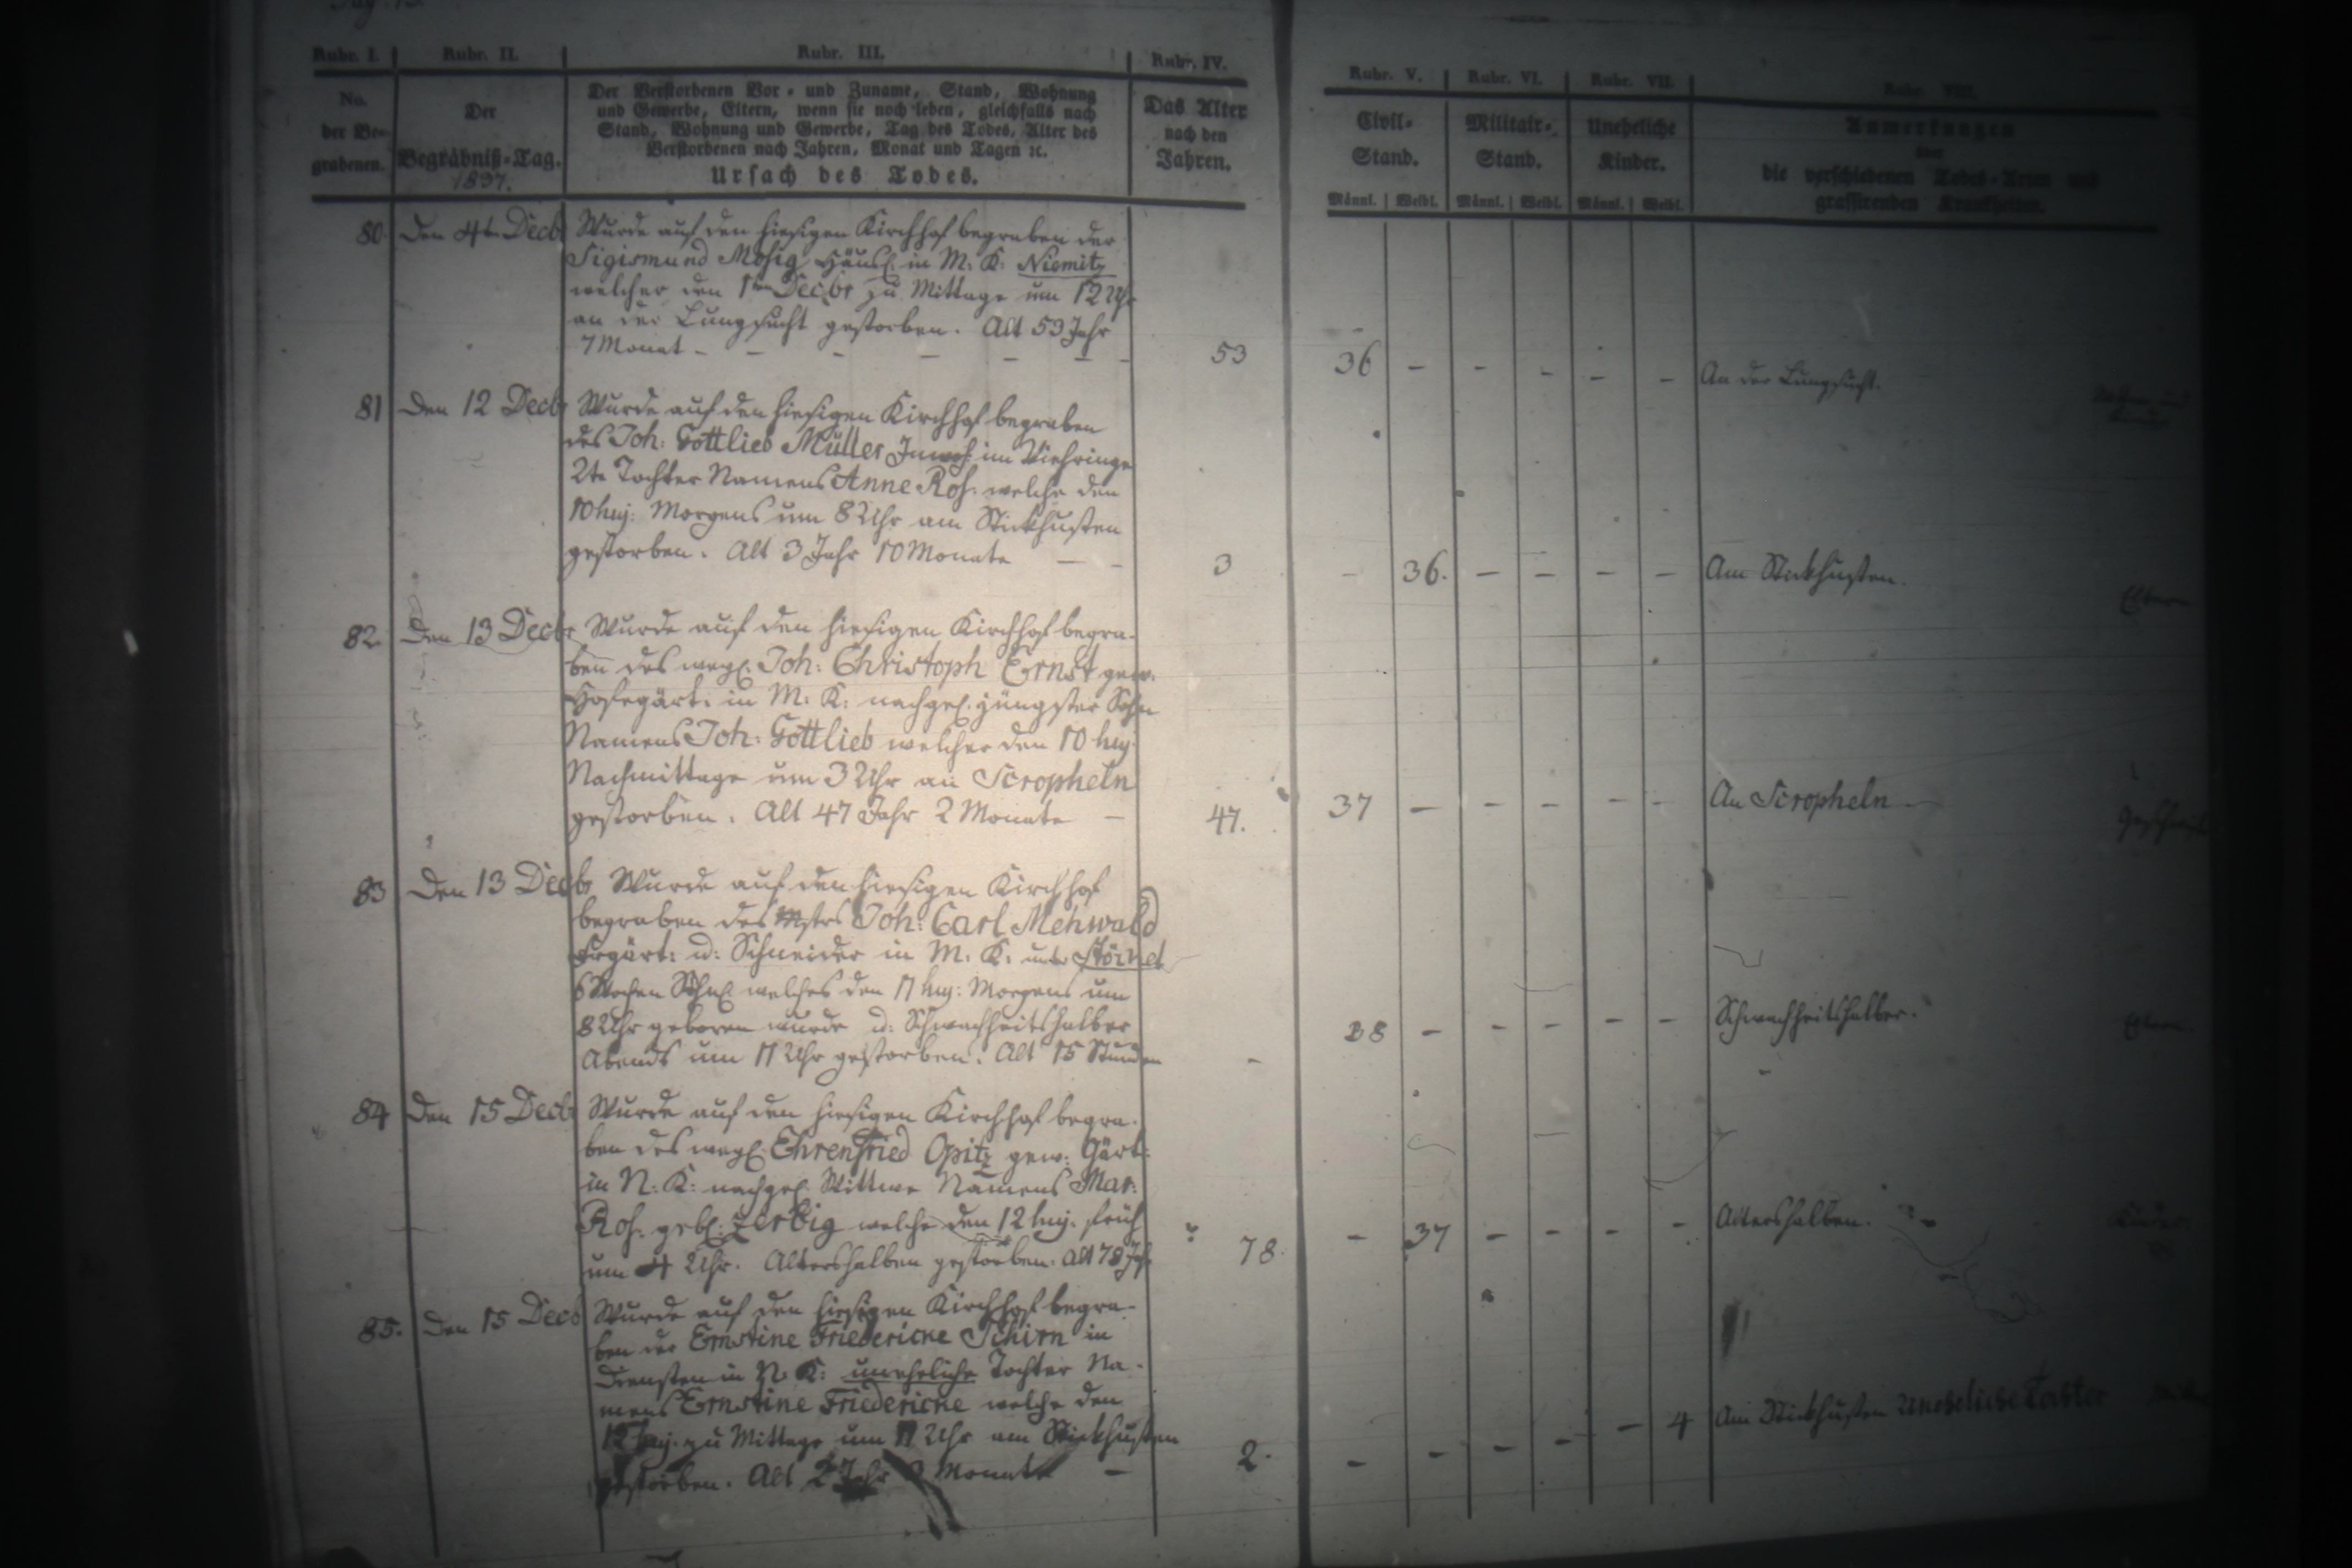 Rubr. I.
Rubr. II.
Rubr. III.
Rubr. IV.
Rubr. V.
Rubr. VI.
Rubr. VII.
Rubr. VIII.
No.
der Be-
grabenen.
Der
Begräbniß-Tag.
1837.
Der Verstorbenen Vor- und Zuname, Stand, Wohnung
und Gewerbe, Eltern, wenn sie noch leben, gleichfalls nach
Stand, Wohnung und Gewerbe, Tag des Todes, Alter des
Verstorbenen nach Jahren, Monat und Tagen ꝛc.
Ursach des Todes.
Das Alter
nach den
Jahren.
Civil-
Stand.
Männl. Weibl.
Militair-
Stand.
Männl. Weibl.
Uneheliche
Kinder.
Männl. Weibl.
Anmerkungen
über
die verschiedenen Todes-Arten und
grassirenden Krankheiten.
80. Den 4ten Decb Wurde auf den hiesigen Kirchhof begraben der
Sigismund Mosig Häusl. in M: K: Niemitz
welcher den 1ten Decbr zu Mittage um 12 Uhr
an der Lungsucht gestorben. Alt 53 Jahr
7 Monat - - - - - - 53 36 - - - - - An der Lungsucht.
81 Den 12 Decbr Wurde auf den hiesigen Kirchhof begraben
des Joh: Gottlieb Müller Inwoh: im Viehringe
2te Tochter Namens Anne Ros: welche den
10 huj: Morgens um 8 Uhr am Stickhusten
gestorben. Alt 3 Jahr 10 Monate - - 3 - 36. - - - - Am Stickhusten.
Eltern
82. Den 13 Decbr Wurde auf den hiesigen Kirchhof begra-
ben des weyl. Joh: Christoph Ernst gew:
Hofegärt: in M: K: nachgel. jüngster Sohn
Namens Joh: Gottlieb welcher den 10 huj:
Nachmittage um 3 Uhr an Scropheln
gestorben. Alt 47 Jahr 2 Monate - 47. 37 - - - - - An Scropheln
83 Den 13 Decbr Wurde auf den hiesigen Kirchhof
begraben des Mstrs Joh: Carl Mehwald
Frgärt: u: Schneider in M: K: unter
6 Wochen Söhnl. welches den 11 huj: Morgens um
8 Uhr geboren wurde u: Schwachheitshalber
Abends um 11 Uhr gestorben. Alt 15 Stunden - 38 - - - - - Schwachheitshalber.
Eltern
84 Den 15 Decb Wurde auf den hiesigen Kirchhof begra-
ben des weyl. Ehrenfried Opitz gew: Gärt:
in N: K: nachgel. Wittwe Namens Mar:
Ros: gebl: Zerbig welche den 12 huj. früh
um 4 Uhr. Altershalben gestorben. Alt 78 Jah. 78. - 37 - - - - Altershalben.
Kinder
85. Den 15 Decb Wurde auf den hiesigen Kirchhof begra-
ben der Ernstine Friedericke Schirn in
Diensten in N: K: uneheliche Tochter Na-
mens Ernstine Friedericke welche den
12 huj. zu Mittage um 11 Uhr am Stickhusten
gestorben. Alt 2 Jahr Monate - 2. - - - - - 4 Am Stickhusten Uneheliche Tochter